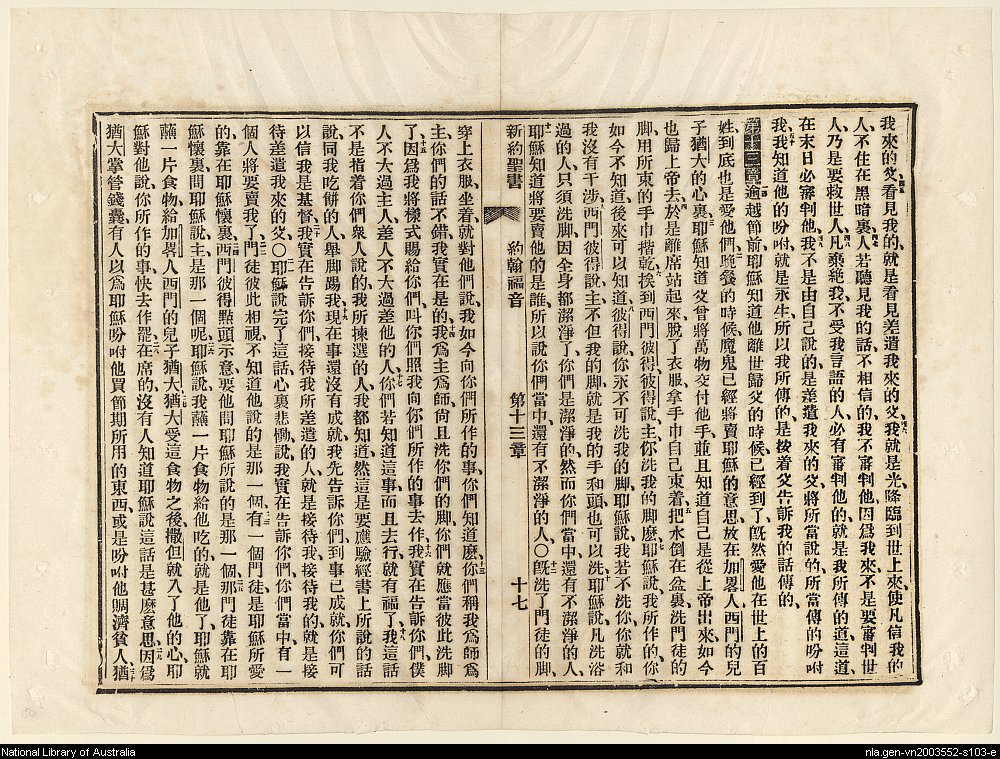 我來的父看見我的就是看見差遣我來的父我就是光降臨到世上來使凡信我的
人不住在黑暗裏人若聽見我的話不相信的我不審判他因爲我來不是要審判世
人乃是要救世人凡棄絶我不受我言語的人必有審判他的就是我所傳的道這道
在末日必審判他我不是由自己說的是差遣我來的父將所當說的所當傳的吩咐
我我知道他的吩咐就是永生所以我所傳的是按着父告訴我的話傳的
第十三章逾越節前耶穌知道他離世歸父的時候已經到了旣然愛他在世上的百
姓到底也是愛他們晚餐的時候魔鬼已經將賣耶穌的意思放在加畧人西門的兒
子猶大的心裏耶穌知道父曾將萬物交付他手並且知道自己是從上帝出來如今
也歸上帝去於是離席站起來脫了衣服拿手巾自己束着把水倒在盆裏洗門徒的
脚用所束的手巾揩乾挨到西門彼得彼得說主你洗我的脚麼耶穌說我所作的你
如今不知道後來可以知道彼得說你永不可洗我的脚耶穌說我若不洗你你就和
我沒有干涉西門彼得說主不但我的脚就是我的手和頭也可以洗耶穌說凡洗浴
過的人只須洗脚因全身都潔淨了你們是潔淨的然而你們當中還有不潔淨的人
耶穌知道將要賣他的是誰所以說你們當中還有不潔淨的人〇旣洗了門徒的脚
新約聖書 約翰福音 第十三章 十七
穿上衣服坐着就對他們說我如今向你們所作的事你們知道麼你們稱我爲師爲
主你們的話不錯我實在是的我爲主爲師尙且洗你們的脚你們就應當彼此洗脚
了因爲我將樣式賜給你們叫你們照我向你們所作的事去作我實在告訴你們僕
人不大過主人差人不大過差他的人你們若知道這事而且去行就有福了我這話
不是指着你們衆人說的我所揀選的人我都知道然這是要應驗經書上所說的話
說同我吃餅的人舉脚踢我現在事還沒有成就我先告訴你們到事已成就你們可
以信我是基督我實在告訴你們接待我所差遣的人就是接待我接待我的就是接
待差遣我來的父〇耶穌說完了這話心裏悲慟說我實在告訴你們你們當中有一
個人將要賣我了門徒彼此相視不知道他說的是那一個有一個門徒是耶穌所愛
的靠在耶穌懷裏西門彼得點頭示意要他問耶穌所說的是那一個那門徒靠在耶
穌懷裏問耶穌說主是那一個呢耶穌說我蘸一片食物給他吃的就是他了耶穌就
蘸一片食物給加畧人西門的兒子猶大猶大受這食物之後撒但就入了他的心耶
穌對他說你所作的事快去作罷在席的沒有人知道耶穌說這話是甚麼意思因爲
猶大掌管錢囊有人以爲耶穌吩咐他買節期所用的東西或是吩咐他賙濟貧人猶
National Library of Australia
nla.gen-vn2003552-s103-e